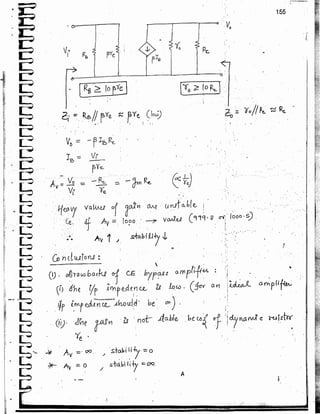 155
V₀
Vᵢ R_B βrₑ βI_B r₀ R_C
R_B ≥ 10βrₑ r₀ ≥ 10R_C
Zᵢ = R_B // βrₑ ≈ βrₑ (low) Z₀ = r₀//R_C ≈ R_C
V₀ = -βI_B R_C
I_B = Vᵢ / βrₑ
A_V = V₀/Vᵢ = -R_C/rₑ = -gₘ R_C (∝ 1/rₑ)
Heavy values of gain are unstable.
i.e. if A_V = 1000 → varies (999.8 or 1000.5)
∴ A_V ↑, stability ↓
Conclusions :
(1). drawbacks of CE bypass amplifier :
(i) The i/p impedence is low. (for an ideal amplifier
i/p impedence should be ∞).
(ii). The gain is not stable becoz of dynamic resistor
rₑ.
* A_V = ∞ , stability = 0
* A_V = 0 , stability = ∞
A